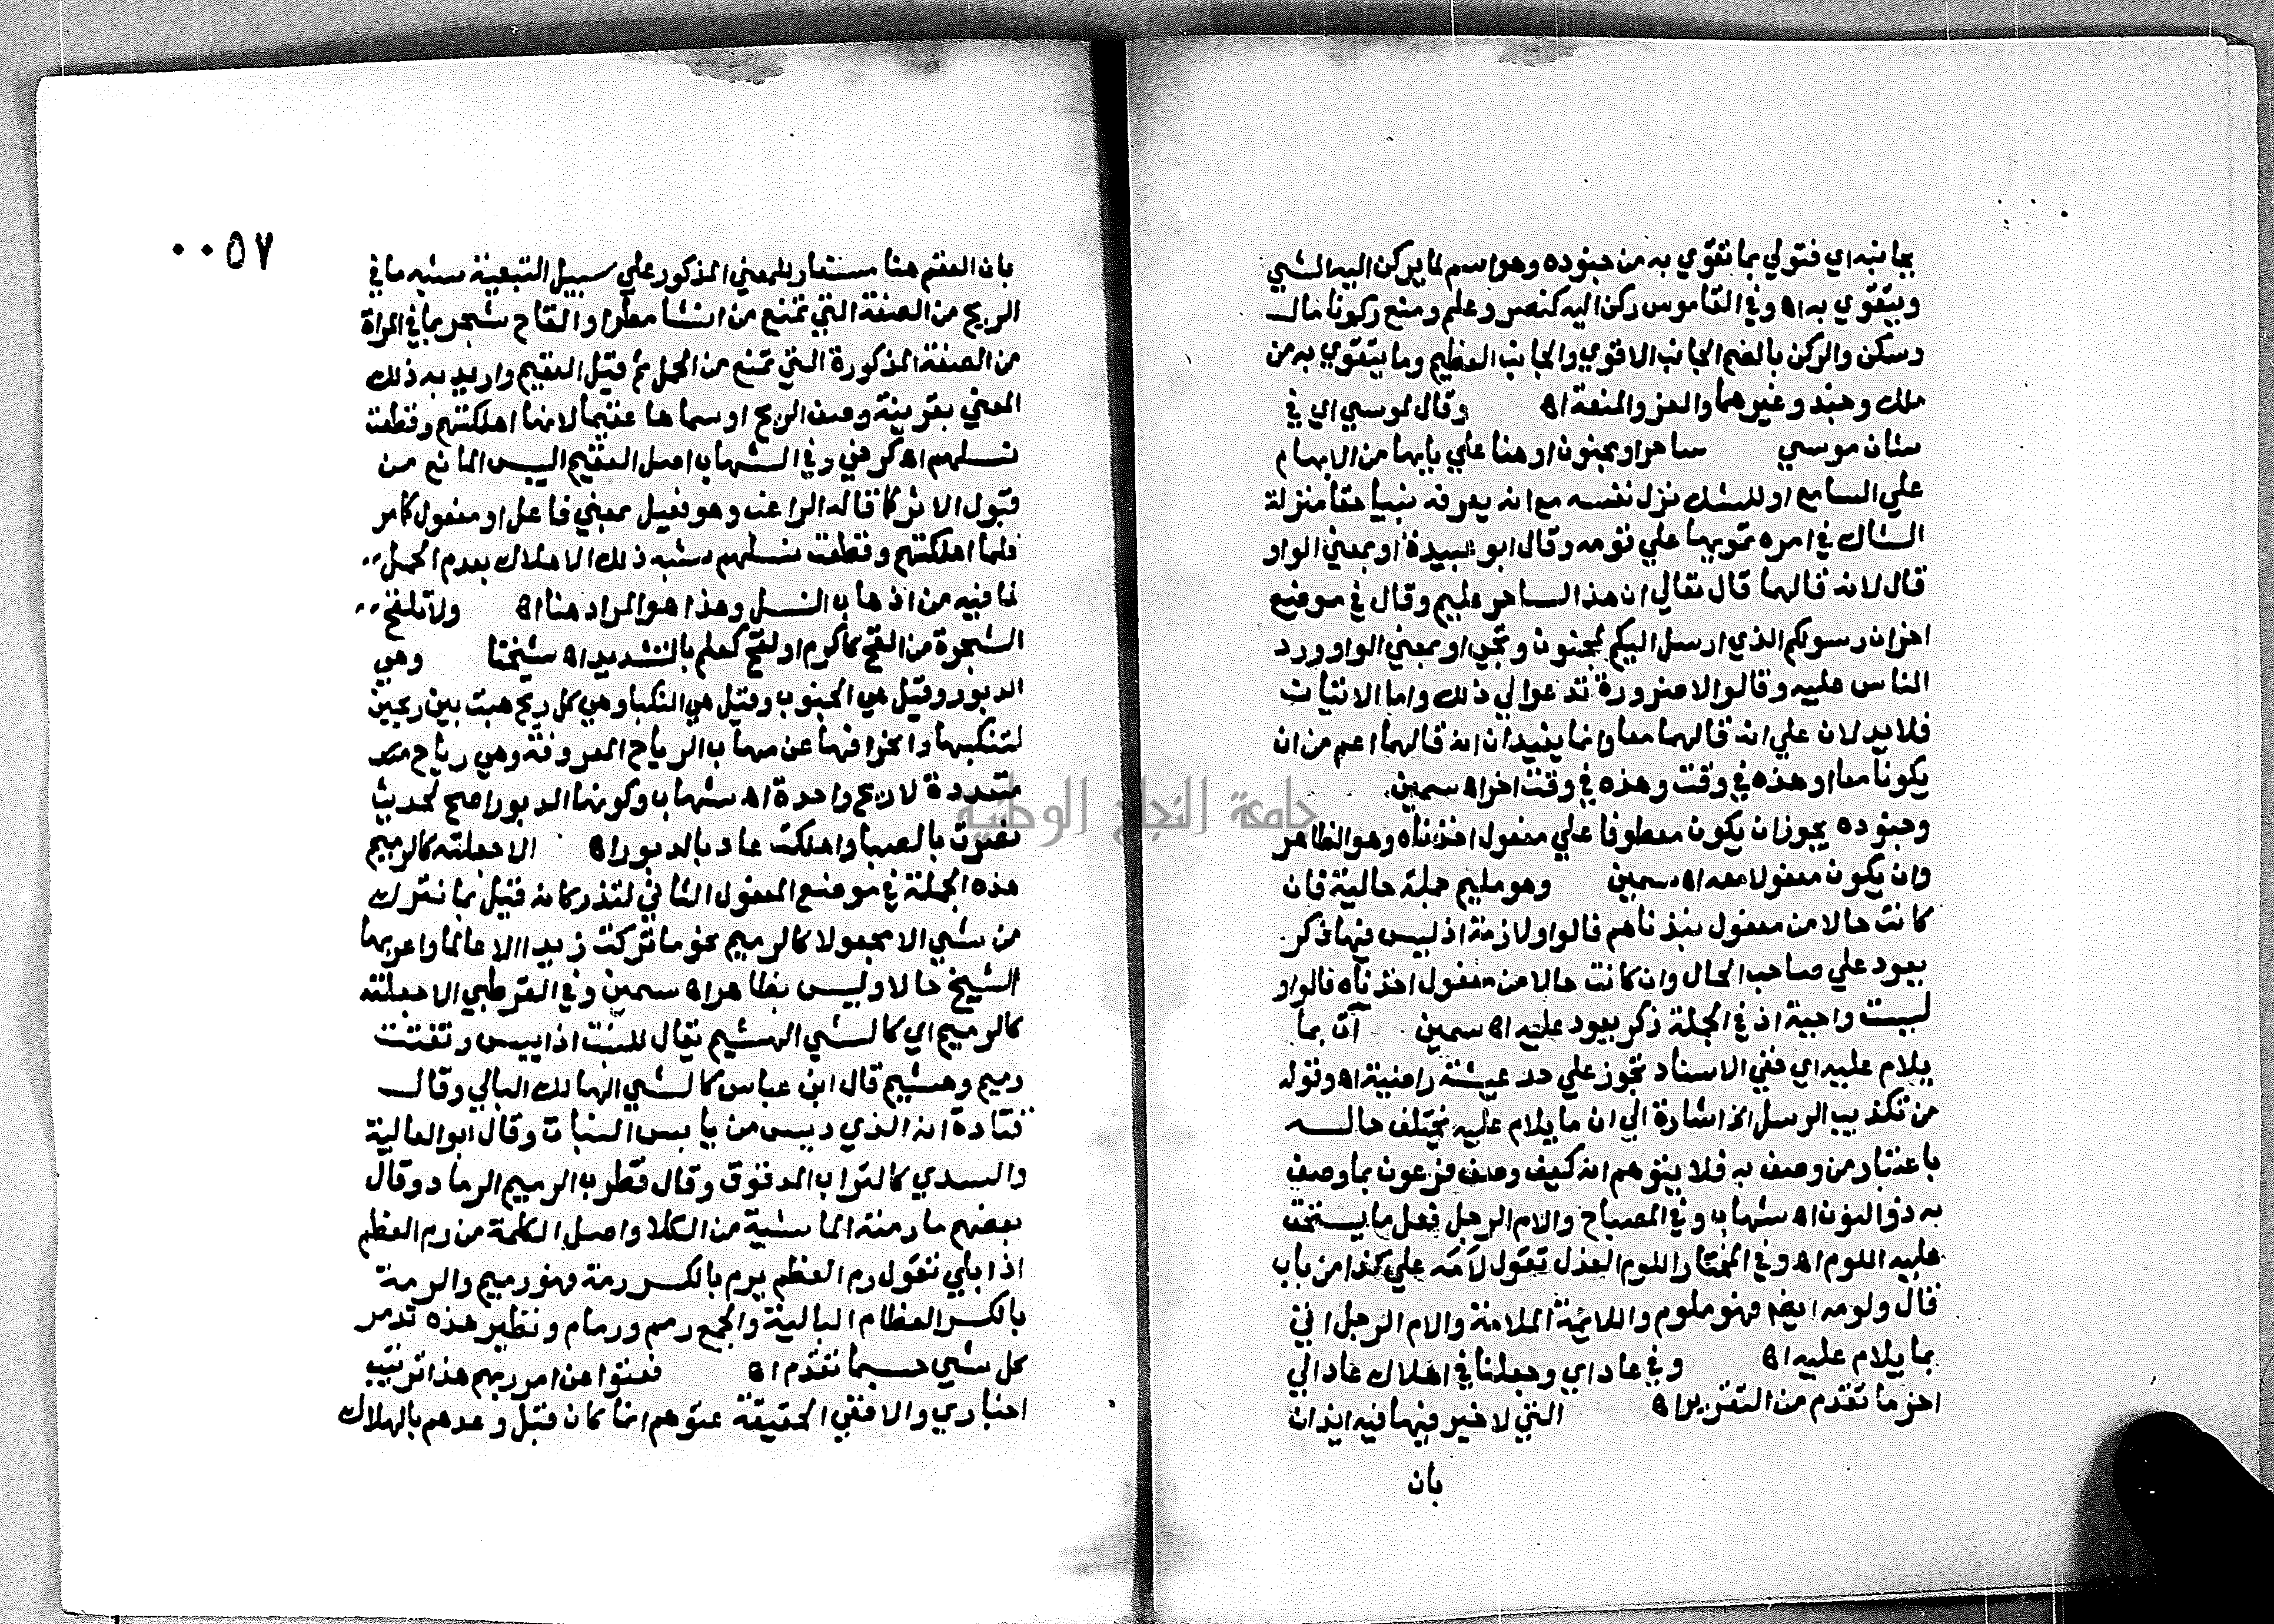 بجانبه اي فتولي بما تقوي به من جنوده وهو اسم لما يركن اليه الشي
ويتقوي به اه وفي القاموس ركن اليه كنصر وعلم ومنع ركونا مال
وسكن والركن بالضم الجانب الاقوي والجانب العظيم وما يتقوي به من
ملك وجند وغيرهما والعز والمنعة اه وقال لموسي اي في
شان موسي ساحر او مجنون او هنا علي بابها من الابهام
علي السامع او للشك نزل نفسه مع انه يعرفه نبيا حقا منزلة
الشاك في امره تمويها علي قومه وقال ابو عبيدة او بمعني الواو
قال لانه قالهما قال تعالي ان هذا لساحر عليم وقال في موضع
اخر ان رسولكم الذي ارسل اليكم لمجنون وتجي او بمعني الواو ورد
الناس عليه وقالوا لا ضرورة تدعوا لي ذلك واما الايتان
فلا يدلان علي انه قالهما معا وانما يفيدان انه قالهما اعم من ان
يكونا معا او هذه في وقت وهذه في وقت اخر اه سمين
وجنوده يجوز ان يكون معطوفا علي مفعول اخذناه وهو الظاهر
وان يكون مفعولا معه اه سمين وهو مليم جملة حالية فان
كانت حالا من مفعول نبذناهم فالواو لازمة اذ ليس فيها ذكر
يعود علي صاحب الحال وان كانت حالا من مفعول اخذناه فالواو
ليست واجبة اذ في الجملة ذكر يعود عليه اه سمين آت بما
يلام عليه اي ففي الاسناد تجوز علي حد عيشة راضية اه وقوله
من تكذيب الرسل الخ اشارة الي ان ما يلام عليه يختلف حاله
باعتبار من وصف به فلا يتوهم انه كيف وصف فرعون بما وصف
به ذو النون اه شهاب وفي المصباح والام الرجل فعل ما يستحق
عليه اللوم اه وفي المختار اللوم العذل تقول لامه علي كذا من باب
قال ولومه ايضا فهو ملوم واللائمة الملامة والام الرجل اتي
بما يلام عليه اه وفي عاد اي وجعلنا في اهلاك عاد الي
اخر ما تقدم من التقرير اه التي لا خير فيها فيه ايذان
بان
٠٠٥٧
بان العقم هنا مستعار للمعني المذكور علي سبيل التبعية شبه ما في
الريح من الصفة التي تمنع من انشا مطر او القاح شجر بما في المراة
من الصفة المذكورة التي تمنع من الحمل ثم قيل العقيم واريد به ذلك
المعني بقرينة وصف الريح او سماها عقيما لانها اهلكتهم وقطعت
نسلهم اه كرخي وفي الشهاب اصل العقم اليبس المانع من
قبول الاثر كما قاله الراغب وهو فعيل بمعني فاعل او مفعول كما مر
فلما اهلكتهم وقطعت نسلهم شبه ذلك الاهلاك بعدم الحمل
لما فيه من اذهاب النسل وهذا هو المراد هنا اه ولا تلقح
الشجرة من القح كاكرم او لقح كعلم بالتشديد اه شيخنا وهي
الدبور وقيل هي الجنوب وقيل هي النكبا وهي كل ريح هبت بين ريحين
لتنكبها وانحرافها عن مهاب الرياح المعروفة وهي رياح
متعددة لا ريح واحدة اه شهاب وكونها الدبور اصح لحديث
نصرت بالصبا واهلكت عاد بالدبور اه الا جعلته كالرميم
هذه الجملة في موضع المفعول الثاني لتذر كانه قيل بما تترك
من شي الا مجعولا كالرميم نحو ما تركت زيدا الا عالما واعربها
الشيخ حالا وليس بظاهر اه سمين وفي القرطبي الا جعلته
كالرميم اي كالشي الهشيم يقال للنبت اذا يبس وتفتت
رميم وهشيم قال ابن عباس كالشي الهالك البالي وقال
قتادة انه الذي ديس من يابس النبات وقال ابو العالية
والسدي كالتراب المدقوق وقال قطرب الرميم الرماد وقال
بعضهم ما رمته الماشية من الكلا واصل الكلمة من رم العظم
اذا بلي تقول رم العظم يرم بالكسر رمة فهو رميم والرمة
بالكسر العظام البالية والجمع رمم ورمام ونظير هذه تدمر
كل شي حسبما تقدم اه فعتوا عن امر ربهم هذا ترتيب
اخباري والا ففي الحقيقة عتوهم انما كان قبل وعدهم بالهلاك
جامعة النجاح الوطنية